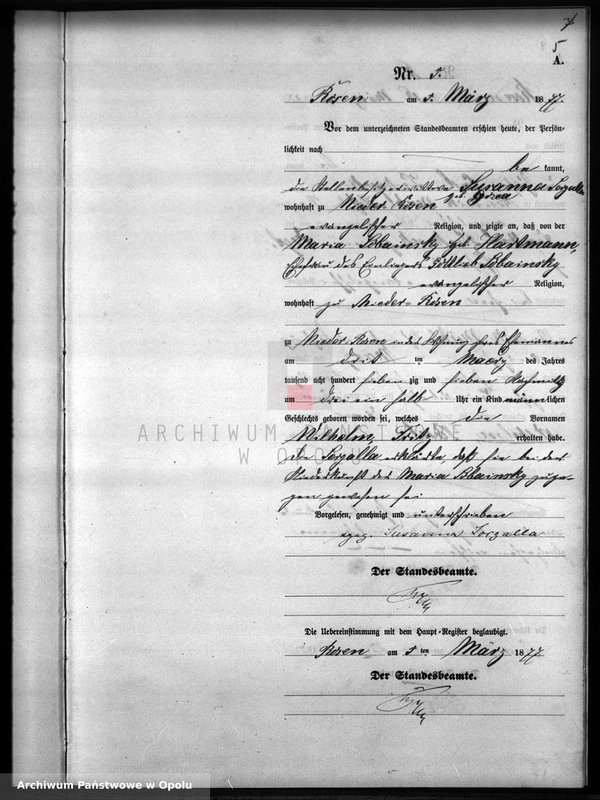 7
5
A.
Nr. 5.
Rösen am 5. März 1877.
Vor dem unterzeichneten Standesbeamten erschien heute, der Persön-
lichkeit nach
be kannt,
die Stellenbesitzerwittwe Susanna Sorgalla
geb.
wohnhaft zu Nieder Rösen
evangelischer Religion, und zeigte an, daß von der
Maria Sobainsky geb. Hartmann,
Ehefrau des Einliegers Gottlieb Sobainsky
evangelischer Religion,
wohnhaft zu Nieder-Rösen
zu Nieder Rösen in der Wohnung ihres Ehemannes
am dritten Maerz des Jahres
tausend acht hundert siebenzig und sieben Nachmittags
um drei ein halb Uhr ein Kind männlichen
Geschlechts geboren worden sei, welches die Vornamen
Wilhelm, Fritz
erhalten habe.
Die Sorgalla erklärte, daß sie bei der
Niederkunft der Maria Sobainsky zuge-
gen gewesen sei
Vorgelesen, genehmigt und unterschrieben
gez. Susanna Sorgalla
Der Standesbeamte.
Die Uebereinstimmung mit dem Haupt-Register beglaubigt.
Rösen am 5 ten März 1877
Der Standesbeamte.
ARCHIWUM PAŃSTWOWE
W OPOLU
Archiwum Państwowe w Opolu